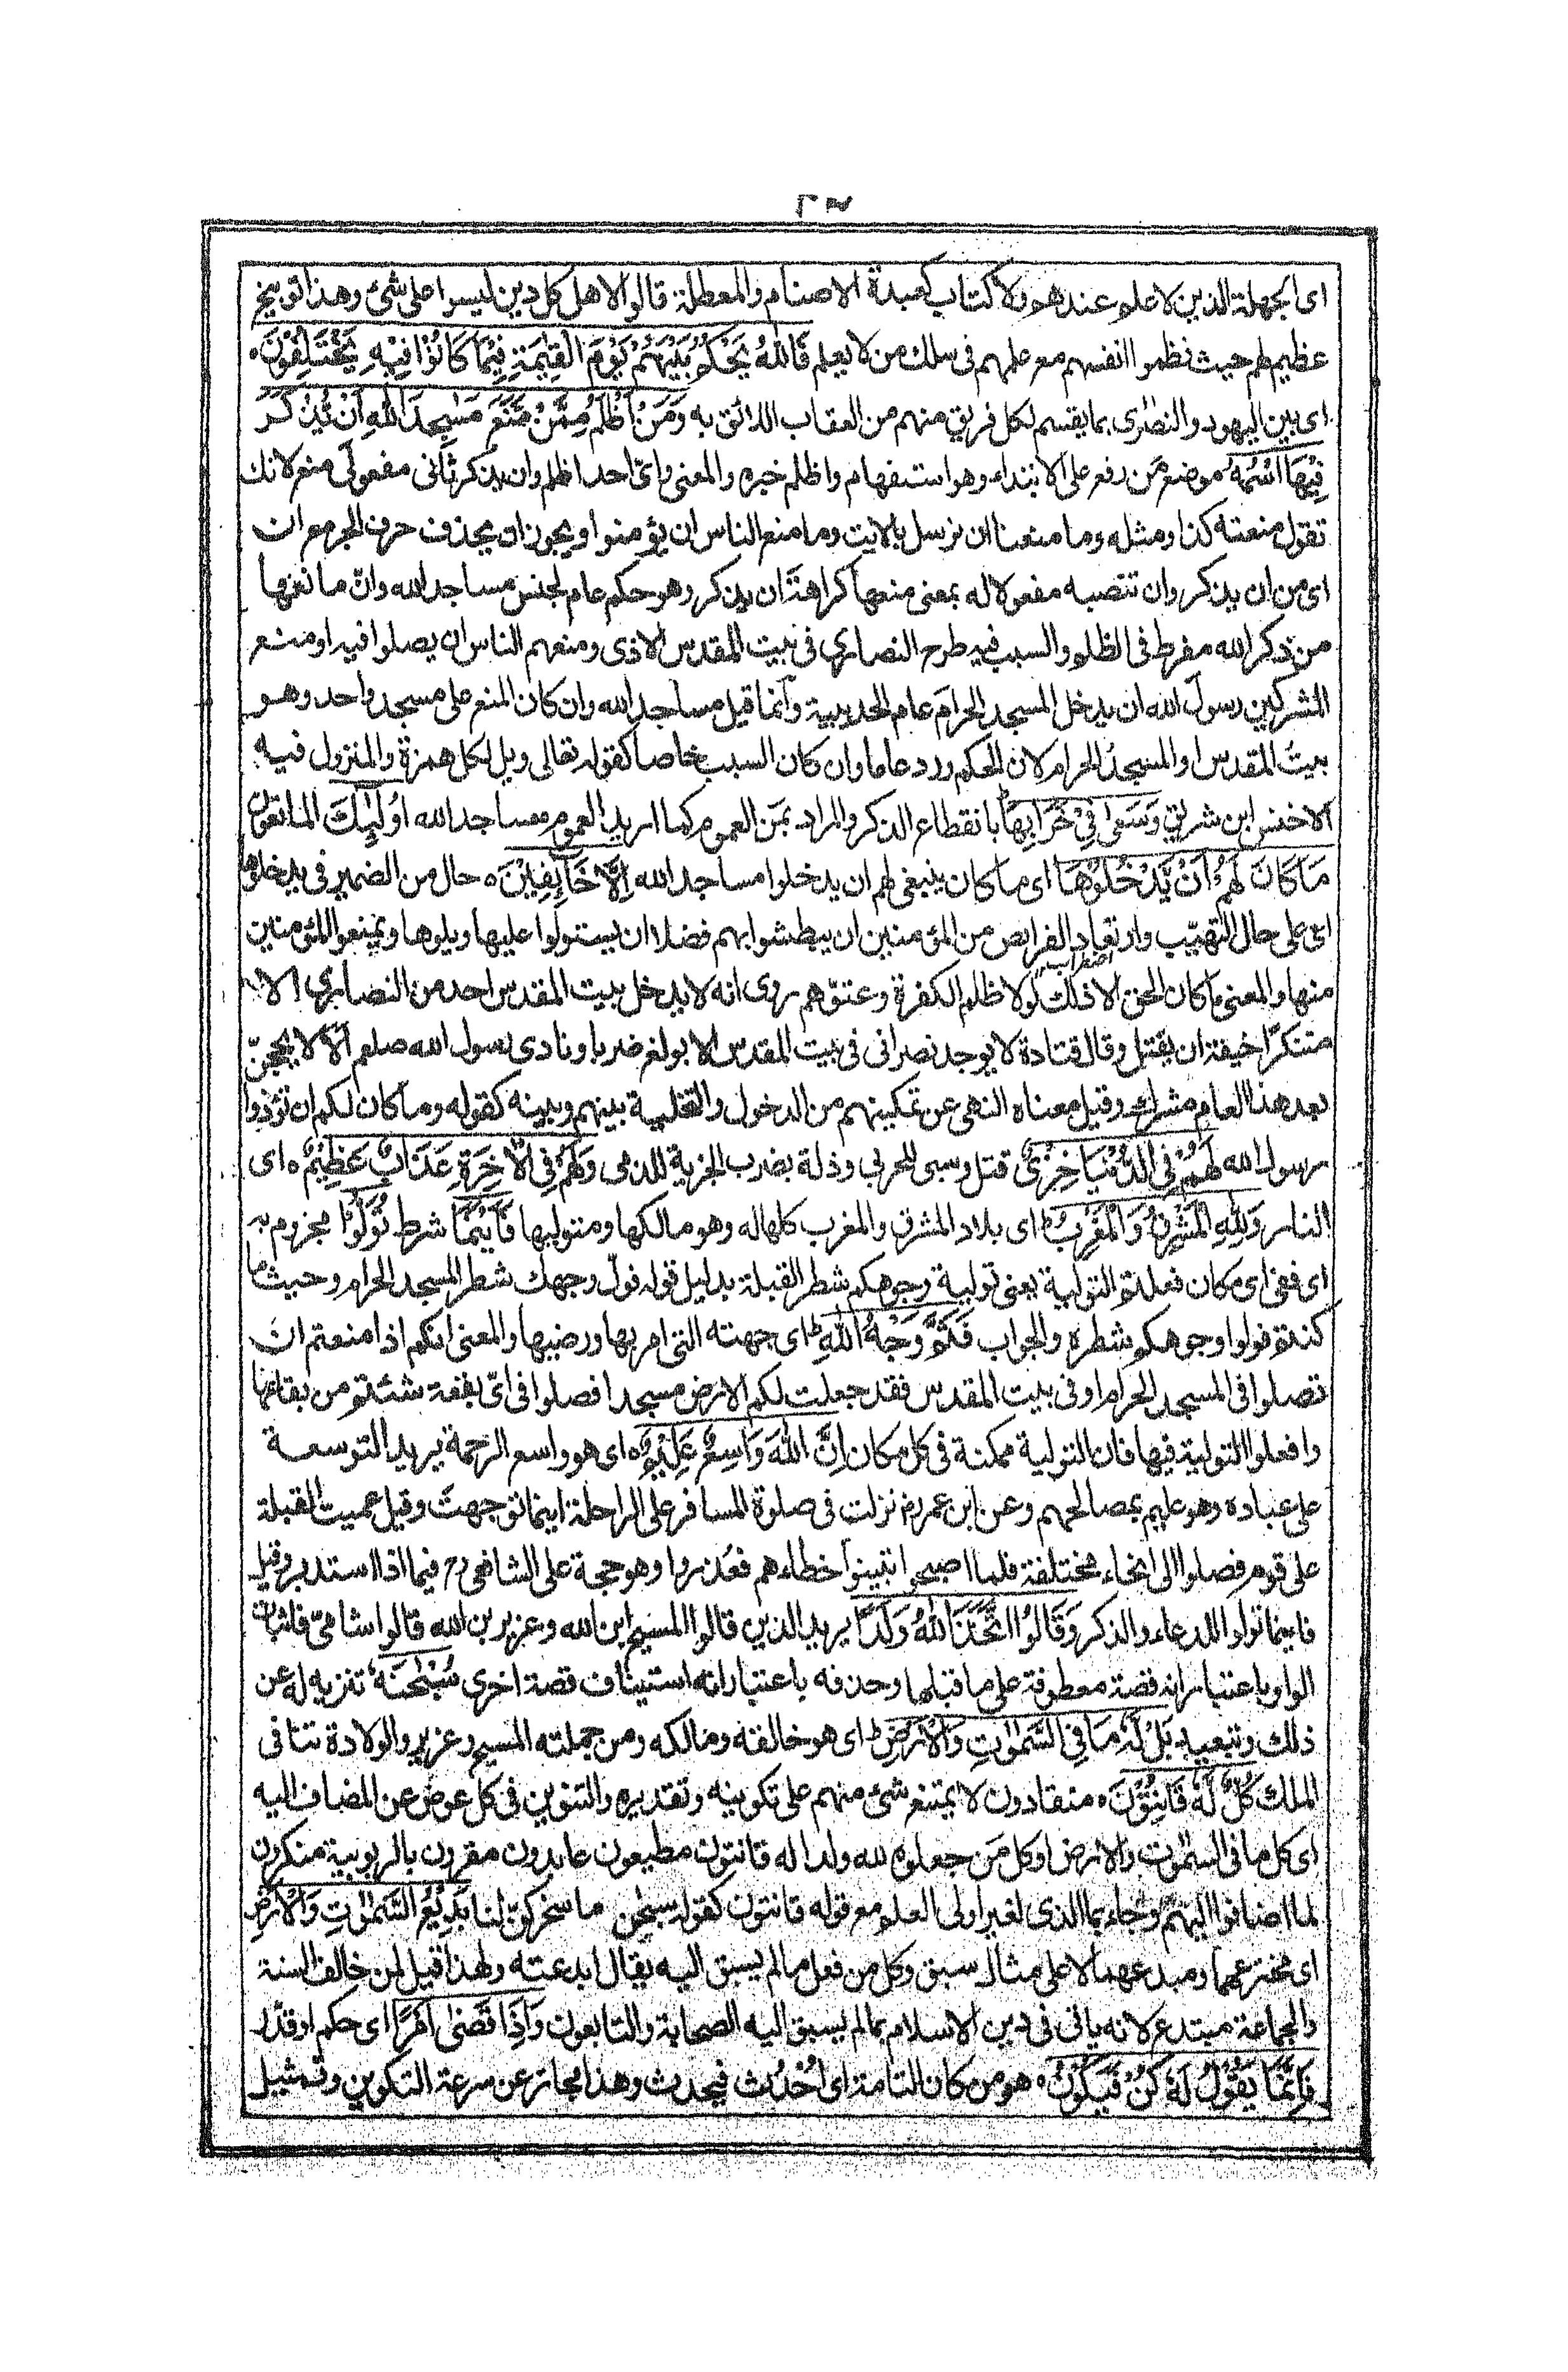 اى الجهلة الذين لا علم عندهم ولا كتاب كعبدة الاصنام والمعطلة قالوا لاهل كل دين ليسوا على شئ وهذا توبيخ
عظيم لهم حيث نظموا انفسهم مع علمهم فى سلك من لا يعلم فَاللّٰهُ يَحْكُمُ بَيْنَهُمْ يَوْمَ الْقِيٰمَةِ فِيْمَا كَانُوْا فِيْهِ يَخْتَلِفُوْنَ ه
اى بين اليهود والنصٰرى بما يقسم لكل فريق منهم من العقاب اللائق به وَمَنْ اَظْلَمُ مِمَّنْ مَّنَعَ مَسٰجِدَ اللّٰهِ اَنْ يُّذْكَرَ
فِيْهَا اسْمُهٗ موضع مَن رفع على الابتداء وهو استفهام واظلم خبره والمعنى واىّ احد اظلم وان يذكر ثانى مفعولَى منع لانك
تقول منعته كذا ومثله وما منعنا ان نرسل بالايت وما منع الناس ان يؤمنوا ويجوز ان يحذف حرف الجر مع ان
اى من ان يذكر وان تنصبه مفعولا له بمعنى منعها كراهةَ ان يذكر وهو حكم عام لجنس مساجد الله وانّ مانعها
من ذكر الله مفرط فى الظلم والسبب فيه طرح النصارى فى بيت المقدس الاذى ومنعهم الناس ان يصلوا فيه او منع
المشركين رسول الله ان يدخل المسجد الحرام عام الحديبية وانما قيل مساجد الله وان كان المنع على مسجد واحد وهو
بيتُ المقدس او المسجدُ الحرام لان الحكم ورد عاما وان كان السبب خاصا كقوله تعالى ويل لكل همزة والمنزول فيه
الاخنس ابن شريق وَسَعٰى فِيْ خَرَابِهَا بانقطاع الذكر والمراد بمَن العموم كما اريد العموم بمساجد الله اُولٰٓئِكَ المانعون
مَا كَانَ لَهُمْ اَنْ يَّدْخُلُوْهَا اى ما كان ينبغى لهم ان يدخلوا مساجد الله اِلَّا خَآئِفِيْنَ ه حال من الضمير فى يدخلوها
اى على حال التهيّب وارتعاد الفرائص من المؤمنين ان يبطشوا بهم فضلا ان يستولوا عليها ويلوها ويمنعوا المؤمنين
منها والمعنى ما كان الحق الا ذلك لولا ظلم الكفرة وعتوّهم روى انه لا يدخل بيت المقدس احد من النصارى الا
متنكرًا خيفة ان يقتل وقال قتادة لا يوجد نصرانى فى بيت المقدس الا بولغ ضربا ونادى رسول الله صلعم ألا لا يحجنّ
بعد هذا العام مشرك وقيل معناه النهى عن تمكينهم من الدخول والتخلية بينهم وبينه كقوله وما كان لكم ان تؤذوا
رسول الله لَهُمْ فِى الدُّنْيَا خِزْىٌ قتل وسبى للحربى وذلة بضرب الجزية للذمى وَلَهُمْ فِى الْاٰخِرَةِ عَذَابٌ عَظِيْمٌ ه اى
النار وَلِلّٰهِ الْمَشْرِقُ وَالْمَغْرِبُ ط اى بلاد المشرق والمغرب كلها له وهو مالكها ومتوليها فَاَيْنَمَا شرط تُوَلُّوْا مجزوم به
اى ففى اى مكان فعلتم التولية يعنى تولية وجوهكم شطر القبلة بدليل قوله فولّ وجهك شطر المسجد الحرام وحيث ما
كنتم فولوا وجوهكم شطره والجواب فَثَمَّ وَجْهُ اللّٰهِ ط اى جهته التى امر بها ورضيها والمعنى انكم اذا منعتم ان
تصلوا فى المسجد الحرام او فى بيت المقدس فقد جعلت لكم الارض مسجدا فصلوا فى اىّ بقعة شئتم من بقاعها
وافعلوا التولية فيها فان التولية ممكنة فى كل مكان اِنَّ اللّٰهَ وَاسِعٌ عَلِيْمٌ ه اى هو واسع الرحمة يريد التوسعة
على عباده وهو عليم بمصالحهم وعن ابن عمر رض نزلت فى صلوة المسافر على الراحلة اينما توجهت وقيل عميت القبلة
على قوم فصلوا الى انحاء مختلفة فلما اصبحوا تبينوا خطاءهم فعُذروا وهو حجة على الشافعى رح فيما اذا استدبر وقيل
فاينما تولوا للدعاء والذكر وَقَالُوا اتَّخَذَ اللّٰهُ وَلَدًا يريد الذين قالوا المسيح ابن الله وعزير بن الله قالوا شامىّ فاثبات
الواو باعتبار انه قصة معطوفة على ما قبلها وحذفه باعتبار انه استيناف قصة اخرى سُبْحٰنَهٗ تنزيه له عن
ذلك وتبعيد بَلْ لَّهٗ مَا فِى السَّمٰوٰتِ وَالْاَرْضِ ط اى هو خالقه ومالكه ومن جملته المسيح وعزير والولادة تنافى
الملك كُلٌّ لَّهٗ قَانِتُوْنَ ه منقادون لا يمتنع شئ منهم على تكوينه وتقديره والتنوين فى كل عوض عن المضاف اليه
اى كل ما فى السمٰوٰت والارض او كل مَن جعلوه لله ولدا له قانتون مطيعون عابدون مقرون بالربوبية منكرون
لما اضافوا اليهم وجاء بما الذى لغير اولى العلم مع قوله قانتون كقوله سبحٰن ما سخركنّ لنا بَدِيْعُ السَّمٰوٰتِ وَالْاَرْضِ
اى مخترعهما ومبدعهما لا على مثال سبق وكل من فعل ما لم يسبق اليه يقال ابدعته ولهذا قيل لمن خالف السنة
والجماعة مبتدع لانه ياتى فى دين الاسلام بما لم يسبق اليه الصحابة والتابعون وَاِذَا قَضٰى اَمْرًا اى حكم او قدّر
فَاِنَّمَا يَقُوْلُ لَهٗ كُنْ فَيَكُوْنُ ه هو من كان التامة اى اُحْدُث فيحدث وهذا مجاز عن سرعة التكوين وتمثيل